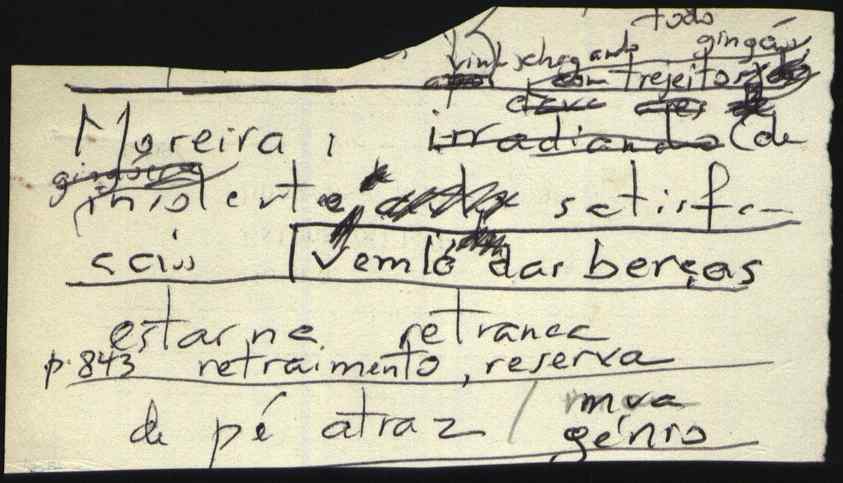 todo
vim chegando gingão,
com trejeitos
Moreira, irradiando (de
insolente satisfa-
ção Vem lá dar berças
estar na retranca
p. 843 retraimento, reserva
de pé atraz / mva
génio